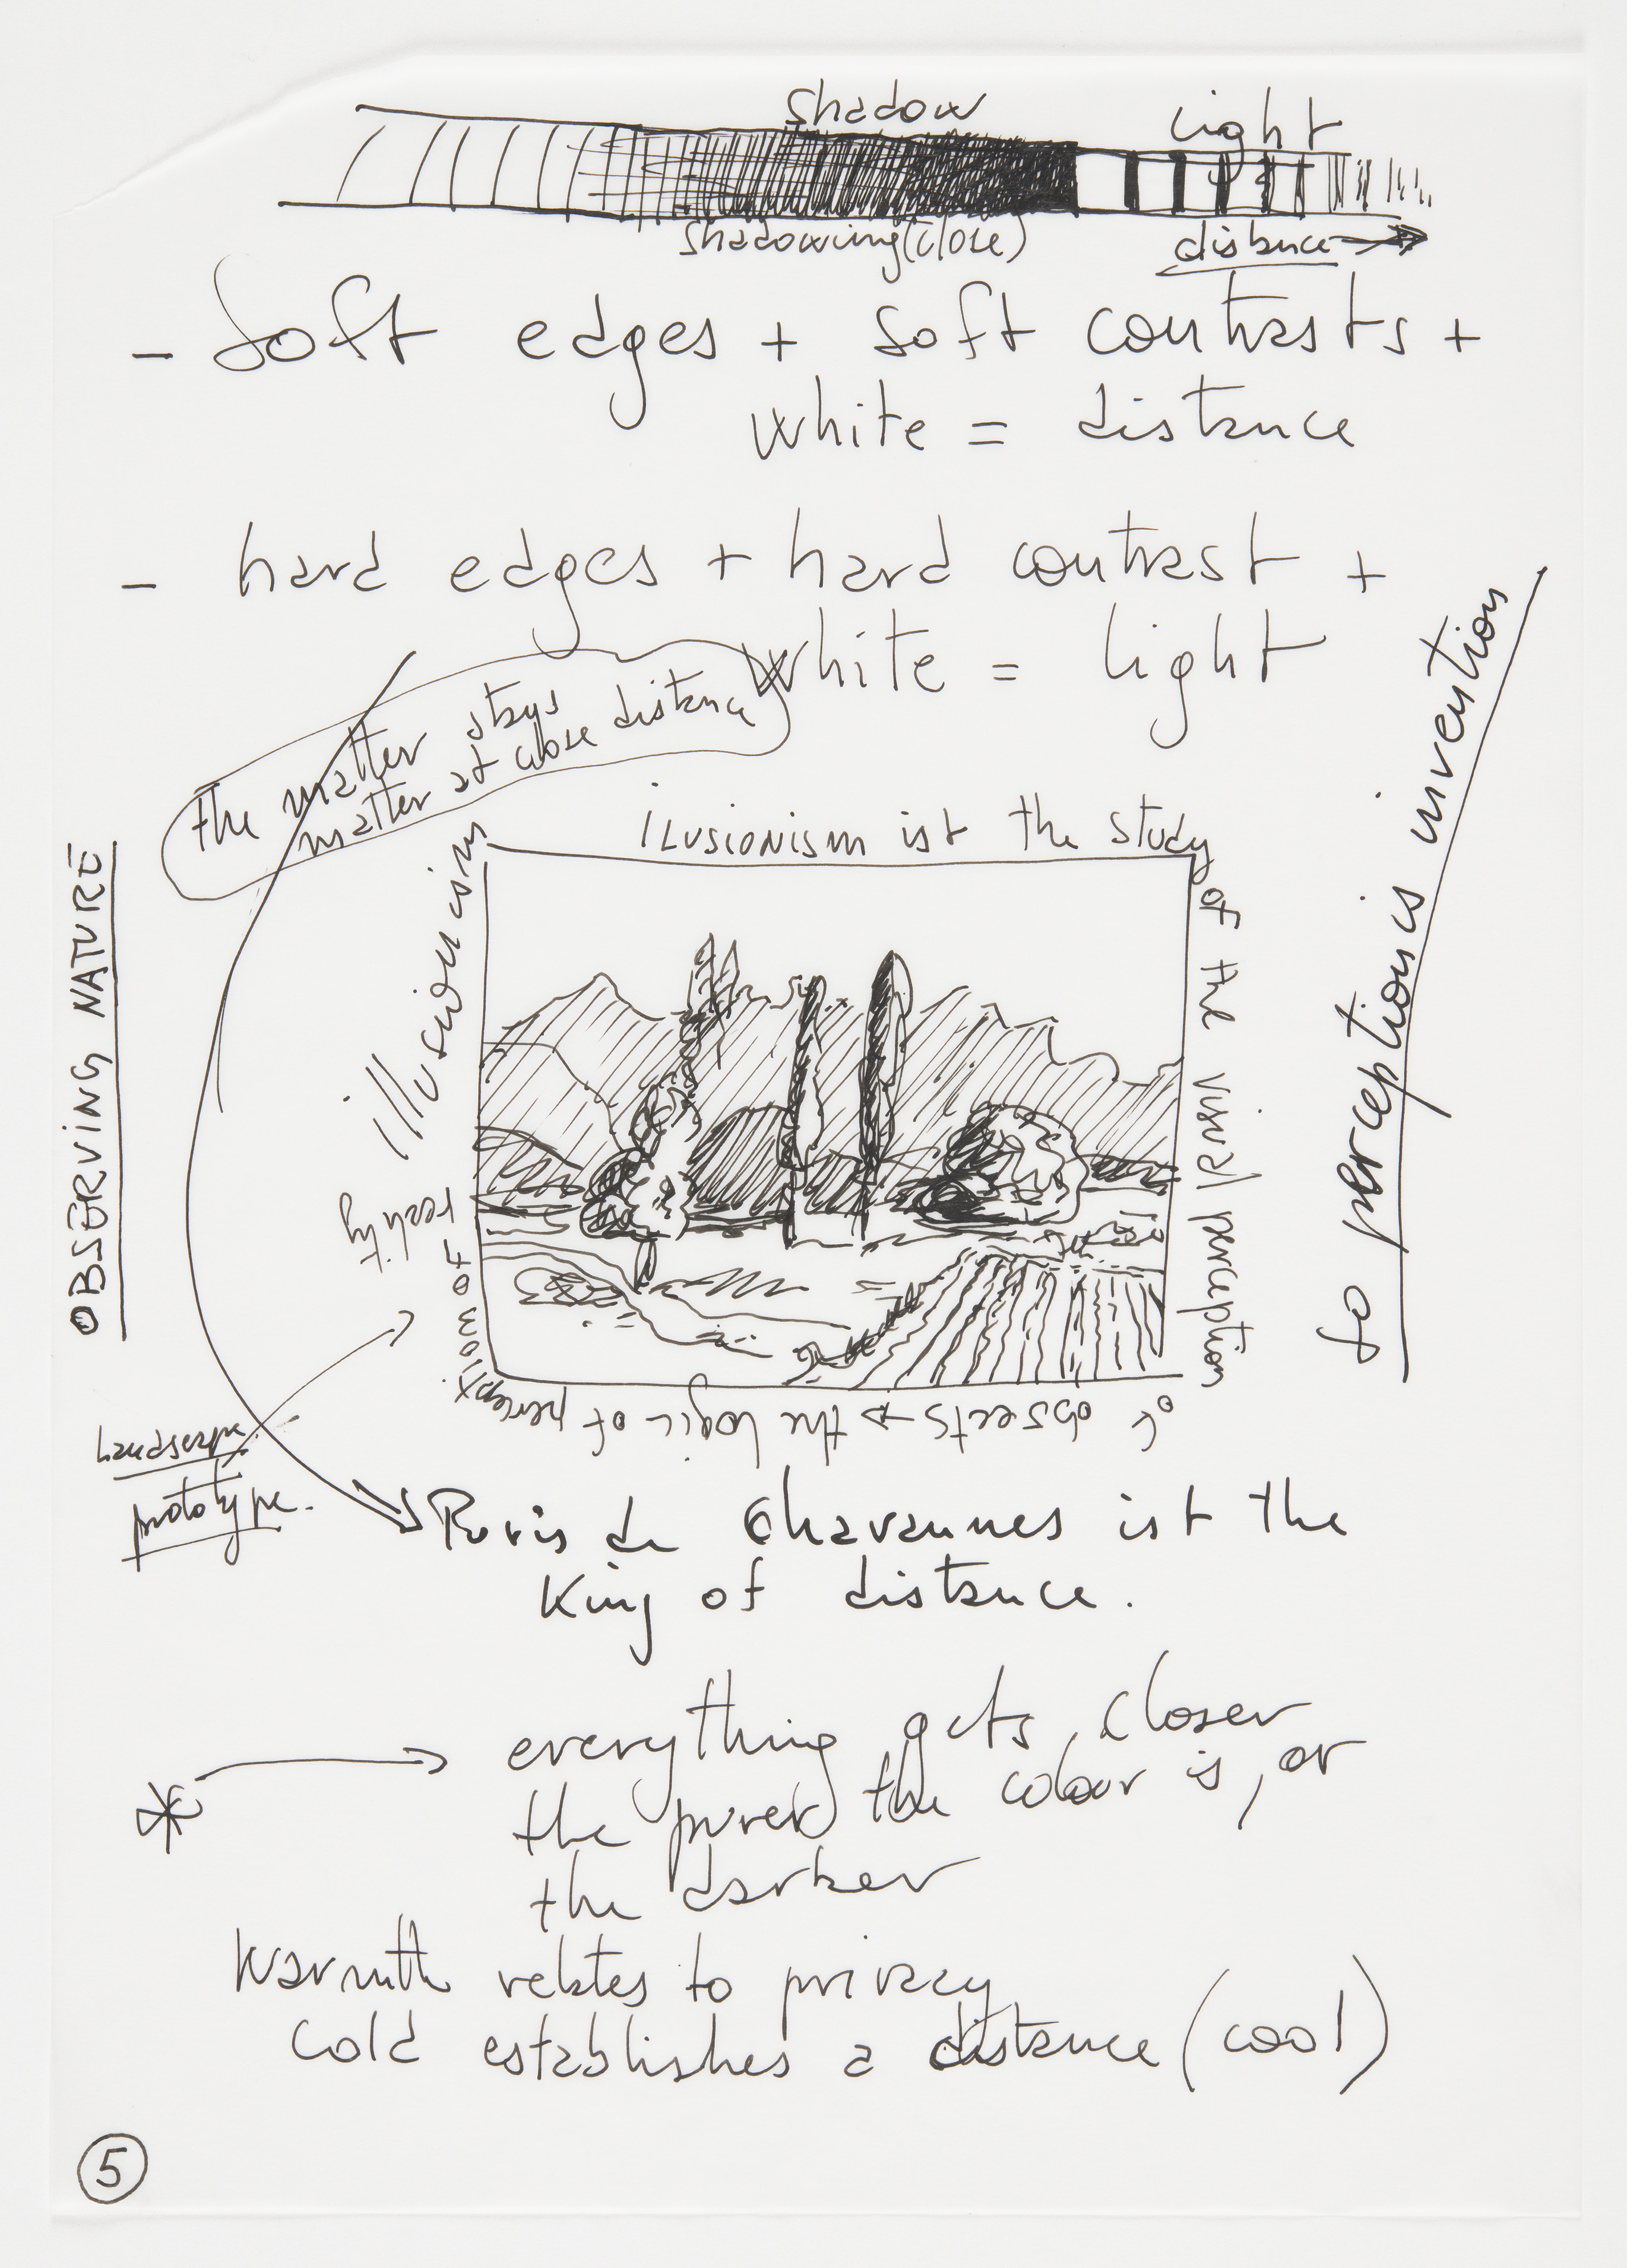 shadow
light
shadowing (close)
distance
- soft edges + soft contrasts +
white = distance
- hard edges + hard contrast +
white = light
the matter stays
matter at close distance
OBSERVING NATURE
ilusionism ist the study
of the visual perception
of obsects → the logic of percept
ixiom of
reality
illusionism
so perception is invention
Landscape
prototype.
Puvis de Chavannes ist the
King of distance.
* everything gets closer
the purer the colour is, or
the darker
Warmth relates to privacy
cold establishes a distance (cool)
5